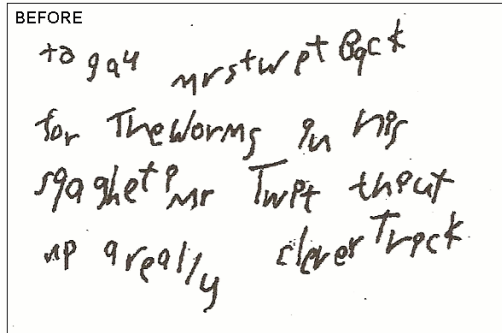 BEFORE
to gay mrs twit Back
for The Worms in his
sgagheti mr Twit thout
up a really clever Trick